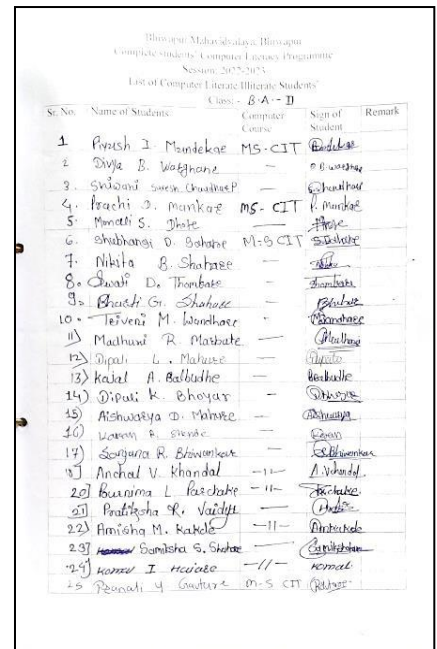 Bhiwapur Mahavidyalaya, Bhiwapur
Complete students' Computer Literacy Programme
Session: 2022-2023
List of Computer Literate Illiterate Students'
Class: - B.A.- II
Sr. No. Name of Students Computer Course Sign of Student Remark
1 Piyush I. Mandekar MS-CIT
2 Divya B. Waghane —
3. Shiwani Suresh Chaudhari — S. Chaudhari
4. Prachi D. Mankar MS-CIT P. Mankar
5. Monali S. Dhote — Dhote
6. Shubhangi D. Sahare M-S CIT S. Sahare
7. Nikita B. Shahare —
8. Swati D. Thombare — Thombare
9. Bhakti G. Shahare —
10. Triveni M. Wandhare —
11) Madhuri R. Marbate —
12) Dipali L. Mahure —
13) Kajal A. Balbudhe — Balbudhe
14) Dipali K. Bhoyar —
15) Aishwarya D. Mahure — Aishwarya
16) Karan — Karan
17) Sanjana R. Bhiwankar — Bhiwankar
Anchal V. Khandal —11—
20] Purnima L —11—
21] Pratiksha R. Vaidya —
22) Amisha M. Kakde —11—
23] Samiksha S. —
24] Komal I —11— Komal
25 Pranali Y M-S CIT